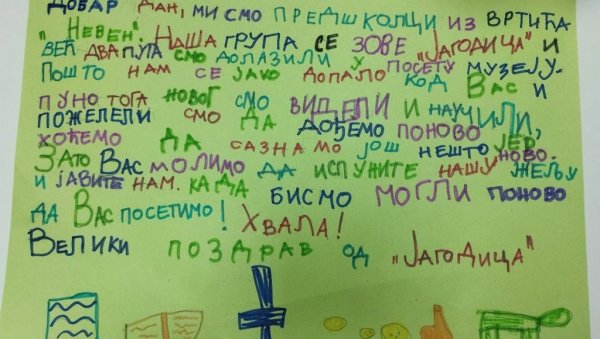 ДОБАР ДАН, МИ СМО ПРЕДШКОЛЦИ ИЗ ВРТИЋА
„НЕВЕН". НАША ГРУПА СЕ ЗОВЕ „ЈАГОДИЦА" И
ВЕЋ ДВА ПУТА СМО ДОЛАЗИЛИ У ПОСЕТУ МУЗЕЈУ.
ПОШТО НАМ СЕ ЈАКО ДОПАЛО КОД ВАС И
ПУНО ТОГА НОВОГ СМО ВИДЕЛИ И НАУЧИЛИ,
ПОЖЕЛЕЛИ СМО ДА ДОЂЕМО ПОНОВО ЈЕР
ХОЋЕМО ДА САЗНАМО ЈОШ НЕШТО НОВО.
ЗАТО ВАС МОЛИМО ДА ИСПУНИТЕ НАШУ ЖЕЉУ
И ЈАВИТЕ НАМ. КАДА БИСМО МОГЛИ ПОНОВО
ДА ВАС ПОСЕТИМО! ХВАЛА!
ВЕЛИКИ ПОЗДРАВ ОД „ЈАГОДИЦА"